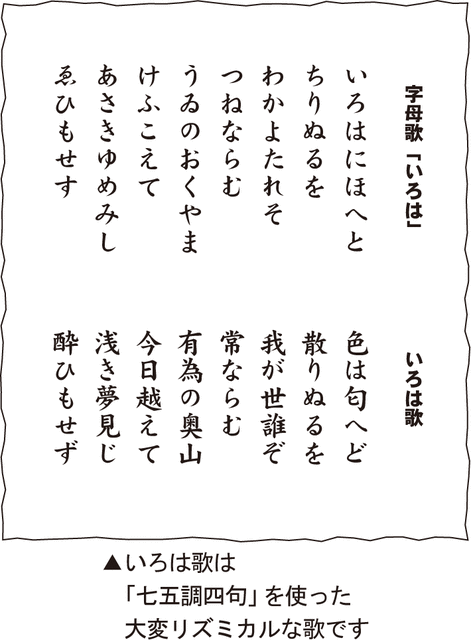 字母歌「いろは」
いろはにほへと
ちりぬるを
わかよたれそ
つねならむ
うゐのおくやま
けふこえて
あさきゆめみし
ゑひもせす
いろは歌
色は匂へど
散りぬるを
我が世誰ぞ
常ならむ
有為の奥山
今日越えて
浅き夢見じ
酔ひもせず
▲いろは歌は
「七五調四句」を使った
大変リズミカルな歌です